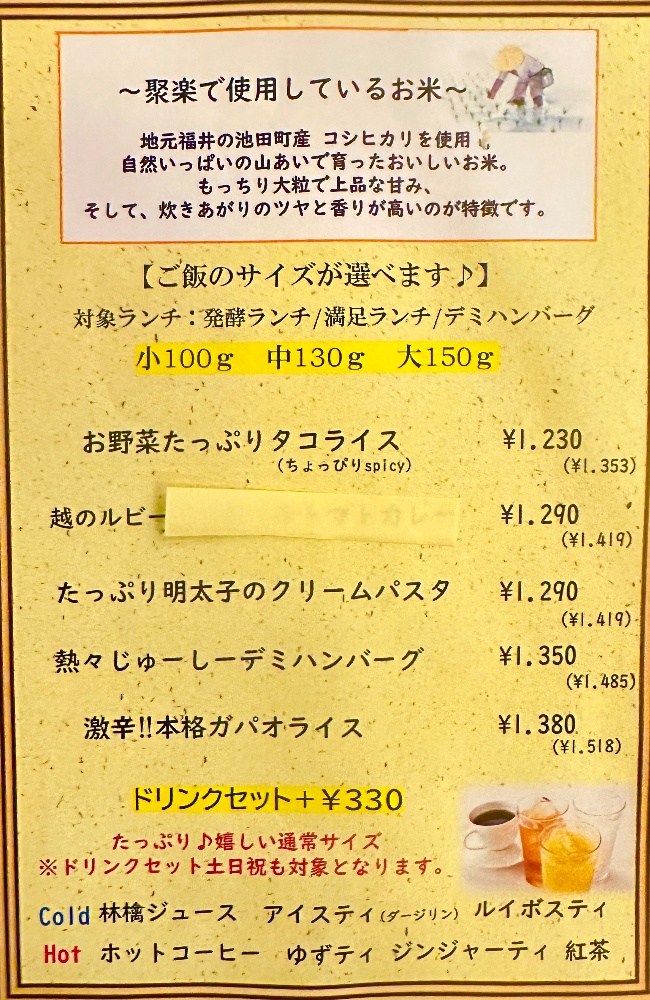 ～聚楽で使用しているお米～
地元福井の池田町産 コシヒカリを使用
自然いっぱいの山あいで育ったおいしいお米。
もっちり大粒で上品な甘み、
そして、炊きあがりのツヤと香りが高いのが特徴です。
【ご飯のサイズが選べます♪】
対象ランチ：発酵ランチ/満足ランチ/デミハンバーグ
小100g 中130g 大150g
お野菜たっぷりタコライス ¥1.230
(ちょっぴりspicy) (¥1.353)
越のルビー トマトカレー ¥1.290
(¥1.419)
たっぷり明太子のクリームパスタ ¥1.290
(¥1.419)
熱々じゅーしーデミハンバーグ ¥1.350
(¥1.485)
激辛!!本格ガパオライス ¥1.380
(¥1.518)
ドリンクセット＋￥330
たっぷり♪嬉しい通常サイズ
※ドリンクセット土日祝も対象となります。
Cold 林檎ジュース アイスティ(ダージリン) ルイボスティ
Hot ホットコーヒー ゆずティ ジンジャーティ 紅茶